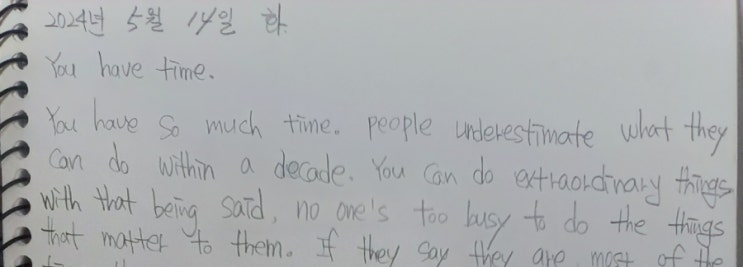 2024년 5월 14일 화
You have time.
You have so much time. people underestimate what they
can do within a decade. You can do extraordinary things
with that being said, no one's too busy to do the things
that matter to them. If they say they are, most of the